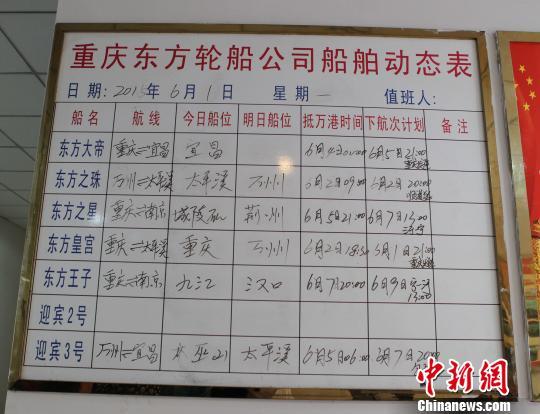 重庆东方轮船公司船舶动态表
日期:2015年6月1日 星期一 值班人:
船名 航线 今日船位 明日船位 抵万港时间 下航次计划 备注
东方大帝 重庆=宜昌 宜昌 6月5日21:00
东方之珠 万州=太平溪 太平溪 万州 6月2日09:00 6月2日 20:00
东方之星 重庆=南京 城陵矶 荆州 6月5日21:00 6月7日13:00
东方皇宫 重庆=太平溪 重庆 万州 6月2日18:30 6月1日21:00
东方王子 重庆=南京 九江 汉口 6月7日20:00 6月9日 13:00
迎宾2号
迎宾3号 万州=宜昌 巫山 太平溪 6月5日06:00 6月7日20:00
中新网
Chinanews.com